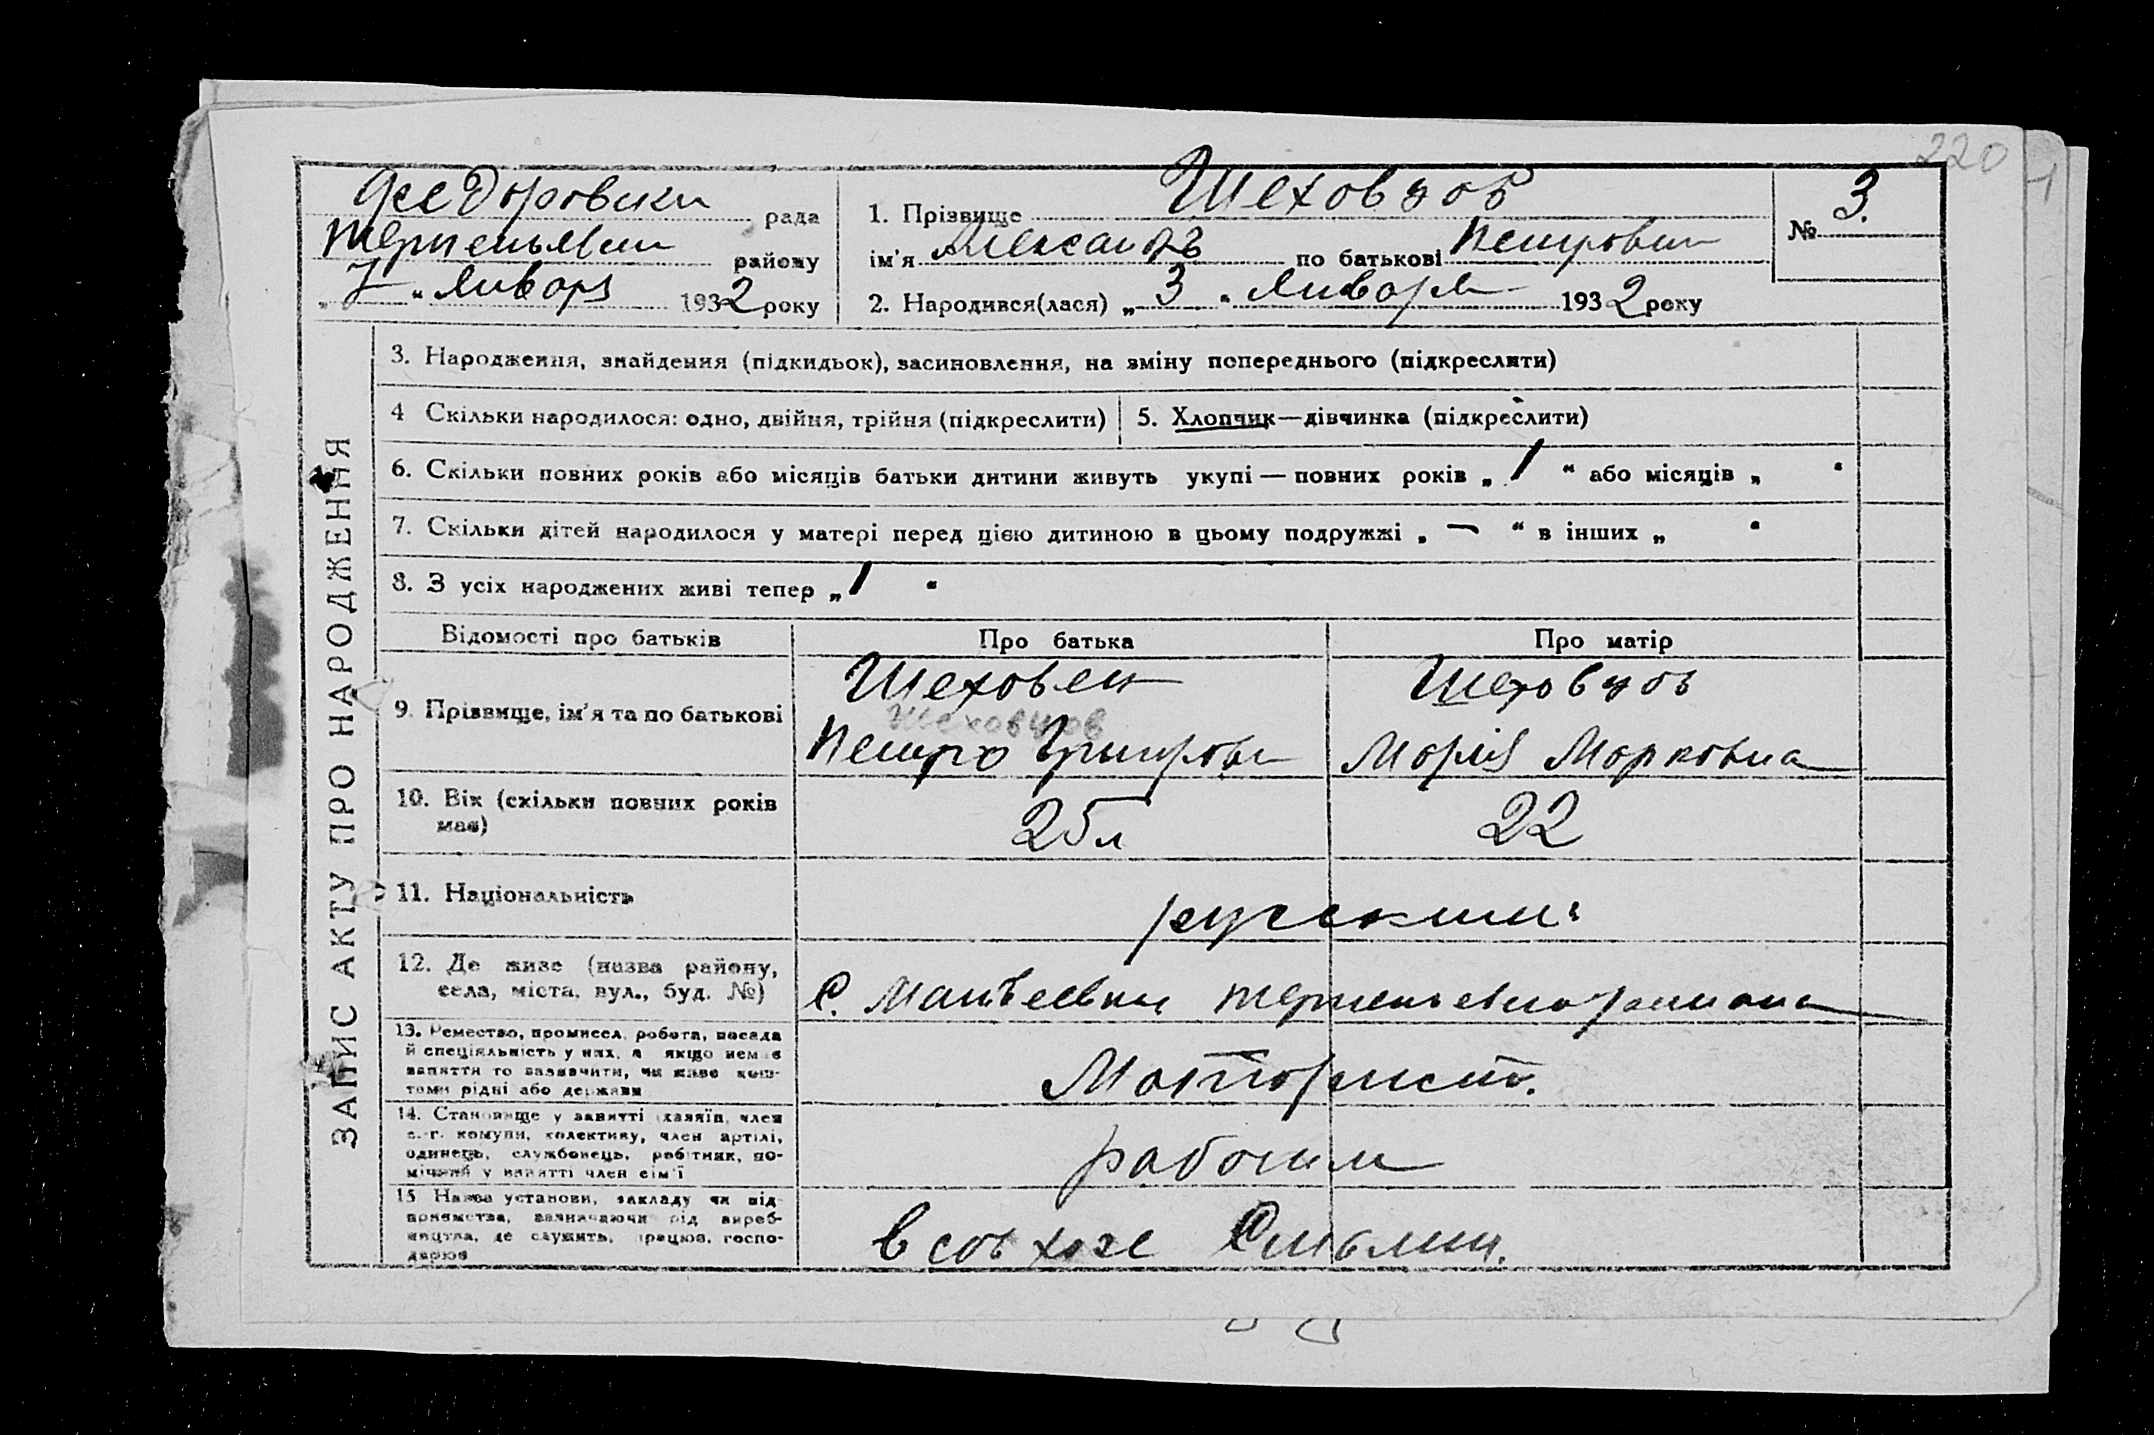 220
Федоровски рада
Терпеньевски району
„ 7 “ Января 1932 року
1. Прізвище Шеховцов
ім'я Александр по батькові Петрович
№ 3.
2. Народився(лася) „ 3 “ Января 1932 року
ЗАПИС АКТУ ПРО НАРОДЖЕННЯ
3. Народження, знайдення (підкидьок), засиновлення, на зміну попереднього (підкреслити)
4 Скільки народилося: одно, двійня, трійня (підкреслити)
5. Хлопчик—дівчинка (підкреслити)
6. Скільки повних років або місяців батьки дитини живуть укупі — повних років „ 1 “ або місяців „ “
7. Скільки дітей народилося у матері перед цією дитиною в цьому подружжі „ — “ в інших „ “
8. З усіх народжених живі тепер „ 1 “
Відомості про батьків Про батька Про матір
9. Прізвище, ім'я та по батькові
Шеховец
Шеховцов
Петро Григрови
Шеховцов
Марія Марковна
10. Вік (скільки повних років
має)
25 л
22
11. Національність
русским
12. Де живе (назва району,
села, міста, вул., буд. №)
С. Матвеевки Терпеньевского района
13. Ремество, промисел, робота, посада
й спеціяльність у них, а якщо немає
заняття то зазначити, чи живе кош-
томи рідні або держави
Моторист.
14. Становище у занятті (хазяїн, член
с.-г. комуни, колективу, член артілі,
одинець, службовець, робітник, по-
мічний у занятті член сім'ї
рабочим
15 Назва установи, закладу чи під-
приємства, зазначаючи рід вироб-
ництва, де служить, працює, госпо-
дарює
в совхозе